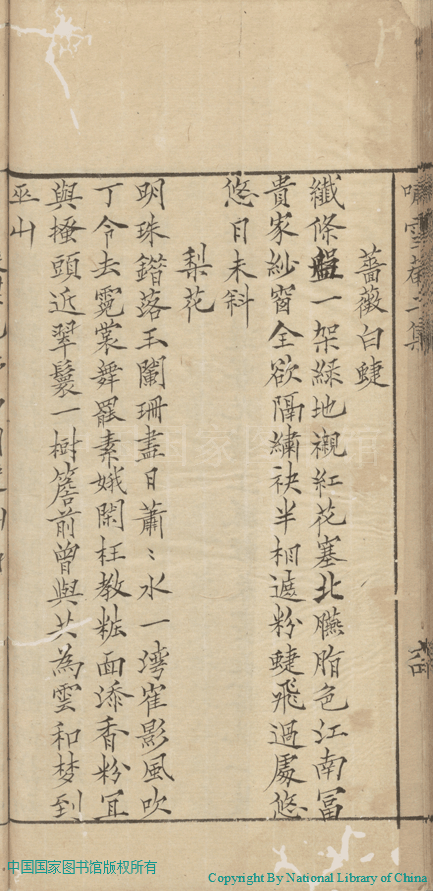 薔薇白蜨
纖條盤一架綠地襯紅花塞北臙脂色江南冨
貴家紗窗全欲隔繡袂半相遮粉蜨飛過處悠
悠日未斜
梨花
明珠錯落玉闌珊盡日蕭〻水一灣寉影風吹
丁令去霓裳舞罷素娥閑枉教粧面添香粉冝
與搔頭近翠鬟一樹簷前曾與共為雲和梦到
巫山
中国国家图书馆版权所有
Copyright By National Library of China